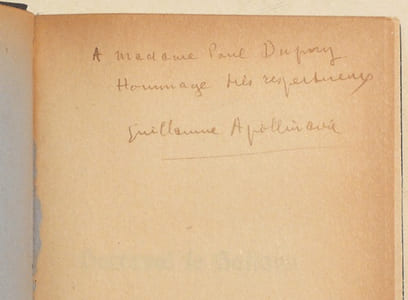 A madame Paul Dupouy
Hommage très respectueux
Guillaume Apollinaire